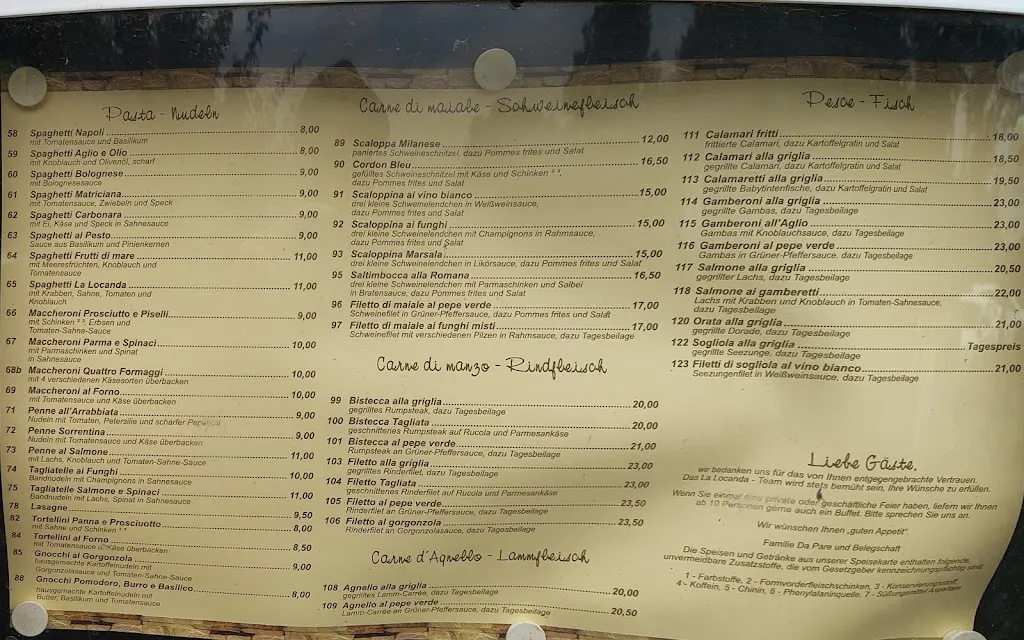 Pasta - Nudeln
58 Spaghetti Napoli 8,00
mit Tomatensauce und Basilikum
59 Spaghetti Aglio e Olio 8,00
mit Knoblauch und Olivenöl, scharf
60 Spaghetti Bolognese 9,00
mit Bolognesesauce
61 Spaghetti Matriciana 9,00
mit Tomatensauce, Zwiebeln und Speck
62 Spaghetti Carbonara 9,00
mit Ei, Käse und Speck in Sahnesauce
63 Spaghetti al Pesto 9,00
Sauce aus Basilikum und Pinienkernen
64 Spaghetti Frutti di mare 11,00
mit Meeresfrüchten, Knoblauch und
Tomatensauce
65 Spaghetti La Locanda 11,00
mit Krabben, Sahne, Tomaten und
Knoblauch
66 Maccheroni Prosciutto e Piselli 9,00
mit Schinken, Erbsen und
Tomaten-Sahne-Sauce
67 Maccheroni Parma e Spinaci 10,00
mit Parmaschinken und Spinat
in Sahnesauce
68b Maccheroni Quattro Formaggi 10,00
mit 4 verschiedenen Käsesorten überbacken
69 Maccheroni al Forno 10,00
mit Tomatensauce und Käse überbacken
71 Penne all'Arrabbiata 9,00
Nudeln mit Tomaten, Petersilie und scharfer
72 Penne Sorrentina 9,00
Nudeln mit Tomatensauce und Käse überbacken
73 Penne al Salmone 11,00
mit Lachs, Knoblauch und Tomaten-Sahne-Sauce
74 Tagliatelle ai Funghi 10,00
Bandnudeln mit Champignons in Sahnesauce
75 Tagliatelle Salmone e Spinaci 11,00
Bandnudeln mit Lachs, Spinat in Sahnesauce
78 Lasagne 9,50
82 Tortellini Panna e Prosciutto 8,00
mit Sahne und Schinken
84 Tortellini al Forno 8,50
mit Tomatensauce u. Käse überbacken
85 Gnocchi al Gorgonzola 9,00
hausgemachte Kartoffelnudeln mit
Gorgonzolasauce und Tomaten-Sahne-Sauce
88 Gnocchi Pomodoro, Burro e Basilico 8,00
hausgemachte Kartoffelnudeln mit
Butter, Basilikum und Tomatensauce
Carne di maiale - Schweinefleisch
89 Scaloppa Milanese 12,00
paniertes Schweineschnitzel, dazu Pommes frites und Salat
90 Cordon Bleu 16,50
gefülltes Schweineschnitzel mit Käse und Schinken
dazu Pommes frites und Salat
91 Scaloppina al vino bianco 15,00
drei kleine Schweinelendchen in Weißweinsauce,
dazu Pommes frites und Salat
92 Scaloppina ai funghi 15,00
drei kleine Schweinelendchen mit Champignons in Rahmsauce,
dazu Pommes frites und Salat
93 Scaloppina Marsala 15,00
drei kleine Schweinelendchen in Likörsauce, dazu Pommes frites und Salat
95 Saltimbocca alla Romana 16,50
drei kleine Schweinelendchen mit Parmaschinken und Salbei
in Bratensauce, dazu Pommes frites und Salat
96 Filetto di maiale al pepe verde 17,00
Schweinefilet in Grüner-Pfeffersauce, dazu Pommes frites und Salat
97 Filetto di maiale ai funghi misti 17,00
Schweinefilet mit verschiedenen Pilzen in Rahmsauce, dazu Tagesbeilage
Carne di manzo - Rindfleisch
99 Bistecca alla griglia 20,00
gegrilltes Rumpsteak, dazu Tagesbeilage
100 Bistecca Tagliata 20,00
geschnittenes Rumpsteak auf Rucola und Parmesankäse
101 Bistecca al pepe verde 21,00
Rumpsteak an Grüner-Pfeffersauce, dazu Tagesbeilage
103 Filetto alla griglia 23,00
gegrilltes Rinderfilet, dazu Tagesbeilage
104 Filetto Tagliata 23,00
geschnittenes Rinderfilet auf Rucola und Parmesankäse
105 Filetto al pepe verde 23,50
Rinderfilet an Grüner-Pfeffersauce, dazu Tagesbeilage
106 Filetto al gorgonzola 23,50
Rinderfilet an Gorgonzolasauce, dazu Tagesbeilage
Carne d'Agnello - Lammfleisch
108 Agnello alla griglia 20,00
gegrilltes Lamm-Carrée, dazu Tagesbeilage
109 Agnello al pepe verde 20,50
Lamm-Carrée an Grüner-Pfeffersauce, dazu Tagesbeilage
Pesce - Fisch
111 Calamari fritti 18,00
frittierte Calamari, dazu Kartoffelgratin und Salat
112 Calamari alla griglia 18,50
gegrillte Calamari, dazu Kartoffelgratin und Salat
113 Calamaretti alla griglia 19,50
gegrillte Babytintenfische, dazu Kartoffelgratin und Salat
114 Gamberoni alla griglia 23,00
gegrillte Gambas, dazu Tagesbeilage
115 Gamberoni all'Aglio 23,00
Gambas mit Knoblauchsauce, dazu Tagesbeilage
116 Gamberoni al pepe verde 23,00
Gambas in Grüner-Pfeffersauce, dazu Tagesbeilage
117 Salmone alla griglia 20,50
gegrillter Lachs, dazu Tagesbeilage
118 Salmone ai gamberetti 22,00
Lachs mit Krabben und Knoblauch in Tomaten-Sahnesauce,
dazu Tagesbeilage
120 Orata alla griglia 21,00
gegrillte Dorade, dazu Tagesbeilage
122 Sogliola alla griglia Tagespreis
gegrillte Seezunge, dazu Tagesbeilage
123 Filetti di sogliola al vino bianco 21,00
Seezungenfilet in Weißweinsauce, dazu Tagesbeilage
Liebe Gäste,
wir bedanken uns für das von Ihnen entgegengebrachte Vertrauen.
Das La Locanda - Team wird stets bemüht sein, Ihre Wünsche zu erfüllen.
Wenn Sie einmal eine private oder geschäftliche Feier haben, liefern wir Ihnen
ab 10 Personen gerne auch ein Buffet. Bitte sprechen Sie uns an.
Wir wünschen Ihnen „guten Appetit".
Familie Da Pare und Belegschaft
Die Speisen und Getränke aus unserer Speisekarte enthalten folgende,
unvermeidbare Zusatzstoffe, die vom Gesetzgeber kennzeichnungspflichtig sind.
1 - Farbstoffe, 2 - Formvorderfleischschinken, 3 - Konservierungsstoff,
4 - Koffein, 5 - Chinin, 6 - Phenylalaninquelle, 7 - Süßungsmittel Aspartam